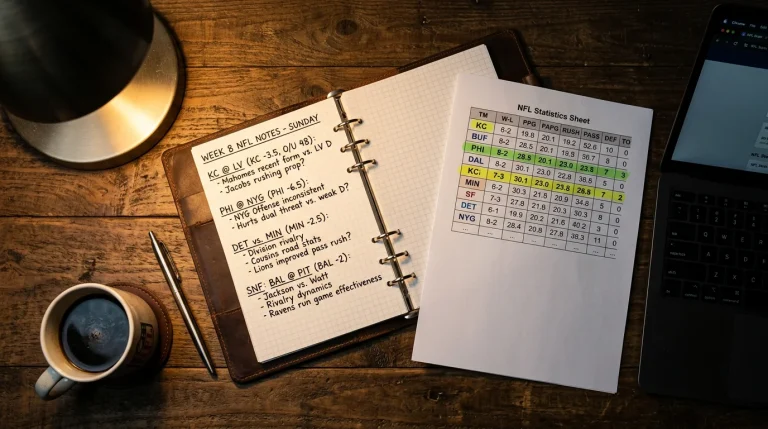 WEEK 8 NFL NOTES - SUNDAY
KC @ LV (KC -3.5, O/U 48):
- Mahomes recent form vs. LV D
- Jacobs rushing prop?
PHI @ NYG (PHI -6.5):
- NYG Offense inconsistent
- Hurts dual threat vs. weak D?
DET vs. MIN (MIN -2.5):
- Division rivalry
- Cousins road stats
- Lions improved pass rush?
SNF: BAL @ PIT (BAL -2):
- Jackson vs. Watt
- Rivalry dynamics
- Ravens run game effectiveness
NFL Statistics Sheet
TM W-L PPG PAPG RUSH PASS DEF TO
KC 6-2 19.8 20.1 19.2 52.6 10 0
BUF 8-2 28.5 20.1 19.8 38.7 8 0
PHI 8-2 28.5 20.1 23.0 23.5 7 3
DAL 8-2 30.1 23.0 22.8 38.6 5 0
KC 7-3 30.1 23.0 23.8 28.5 7 2
MIN 6-2 30.3 21.8 20.9 34.8 5 0
SF 7-3 27.8 21.8 20.3 30.3 8 0
DET 6-1 19.9 20.2 21.6 40.2 3 0
NYG 8-2 28.4 20.8 27.8 38.3 11 0
... ... ... ... ... ... ... ...